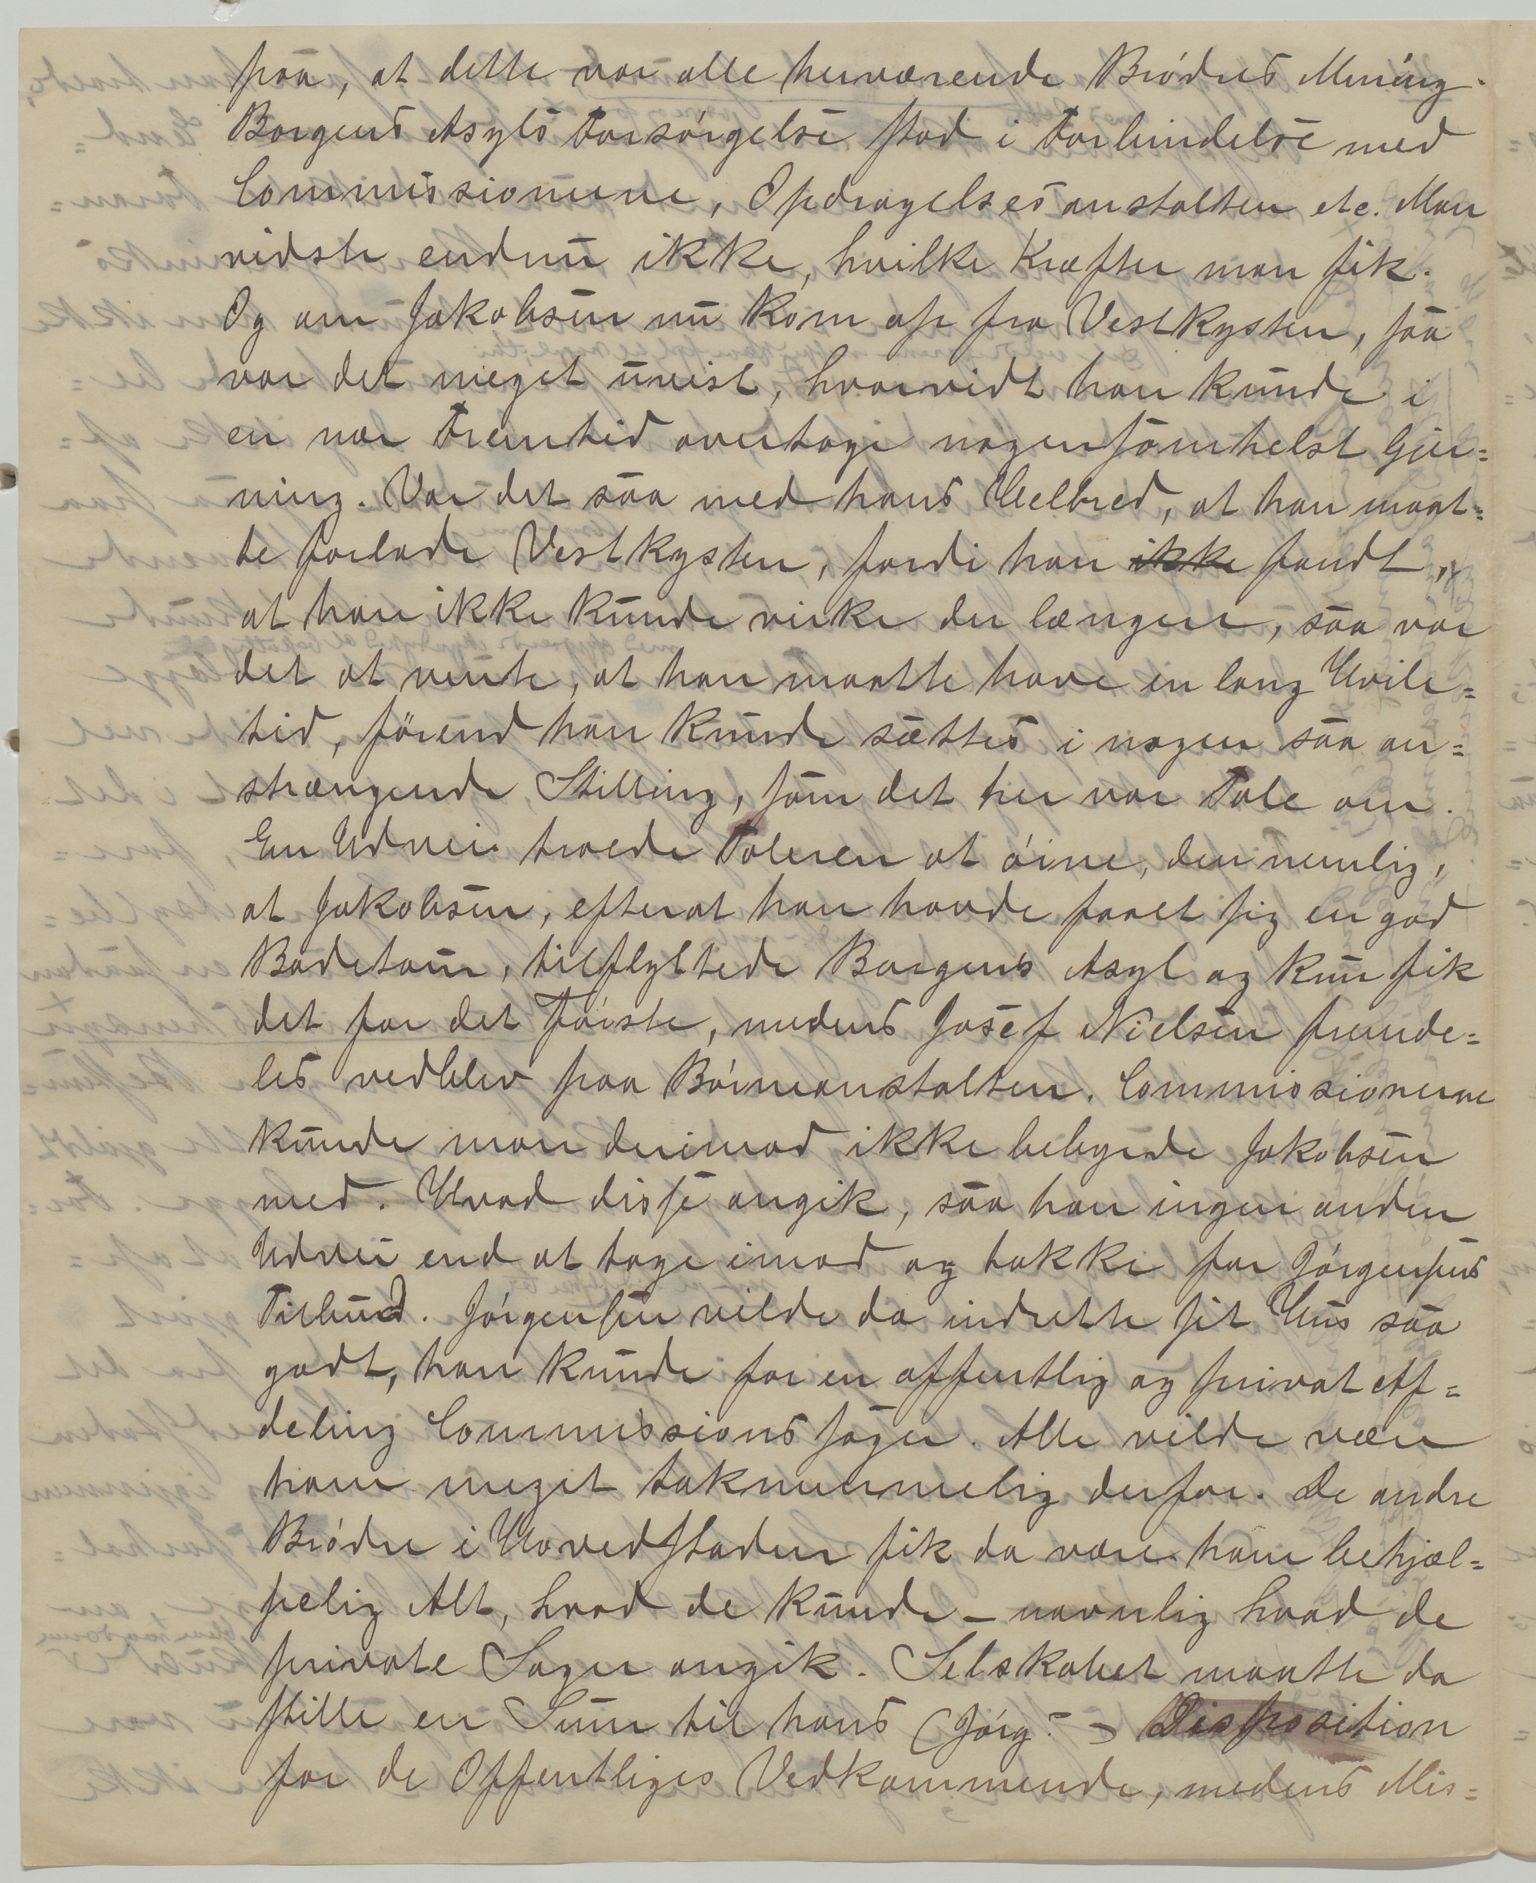 paa, at dette var alle herværende Brødres Mening.
Borgens Asyls Forsørgelse stod i Forbindelse med
Commissionerne, Opdragelsesanstalten etc. Man
vidste endnu ikke, hvilke Kræfter man fik.
Og om Jakobsen nu kom op fra Vestkysten, saa
var det meget uvist, hvorvidt han kunde i
en nær Fremtid overtage nogensomhelst Gjer=
ning. Var det saa med hans Helbred, at han maat=
te forlade Vestkysten, fordi han ikke fandt,
at han ikke kunde virke der længere, saa var
det at vente, at han maatte have en lang Hvile=
tid, førend han kunde sættes i nogen saa an=
strængende Stilling, som det her var Tale om.
En Udvei troede Taleren at øine, den nemlig,
at Jakobsen, efterat han havde faaet sig en god
Badetour, tilflyttede Borgens Asyl og kun fik
det for det Første, medens Josef Nielsen fremde=
les vedblev paa Børneanstalten. Commissionerne
kunde man derimod ikke bebyrde Jakobsen
med. Hvad disse angik, saa han ingen anden
Udvei end at tage imod og takke for Jørgensens
Tilbud. Jørgensen vilde da indrette sit Hus saa
godt, han kunde for en offentlig og privat Af=
deling Commissionssager. Alle vilde være
ham meget taknemmelig derfor. De andre
Brødre i Hovedstaden fik da være ham behjæl=
pelig Alt, hvad de kunde – navnlig hvad de
private Sager angik. Selskabet maatte da
stille en Sum til hans (Jørg:s) Disposition
for de Offentliges Vedkommende, medens Mis=